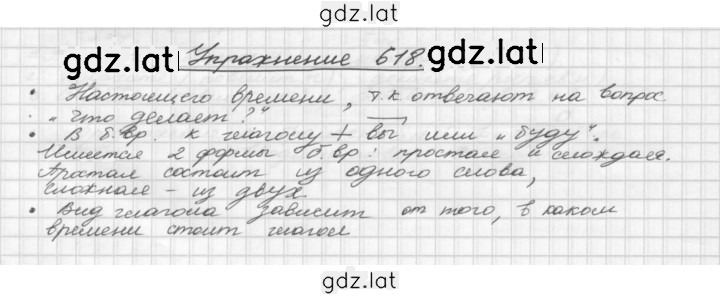 gdz.lat
gdz.lat Упражнение 618. gdz.lat
• Настоящего времени, т.к отвечают на вопрос
„что делает?"
• В б.вр. к глаголу + вы или „буду".
Имеется 2 формы б.вр: простая и сложная.
Простая состоит из одного слова,
сложная – из двух
• Вид глагола зависит от того, в каком
времени стоит глагол
gdz.lat